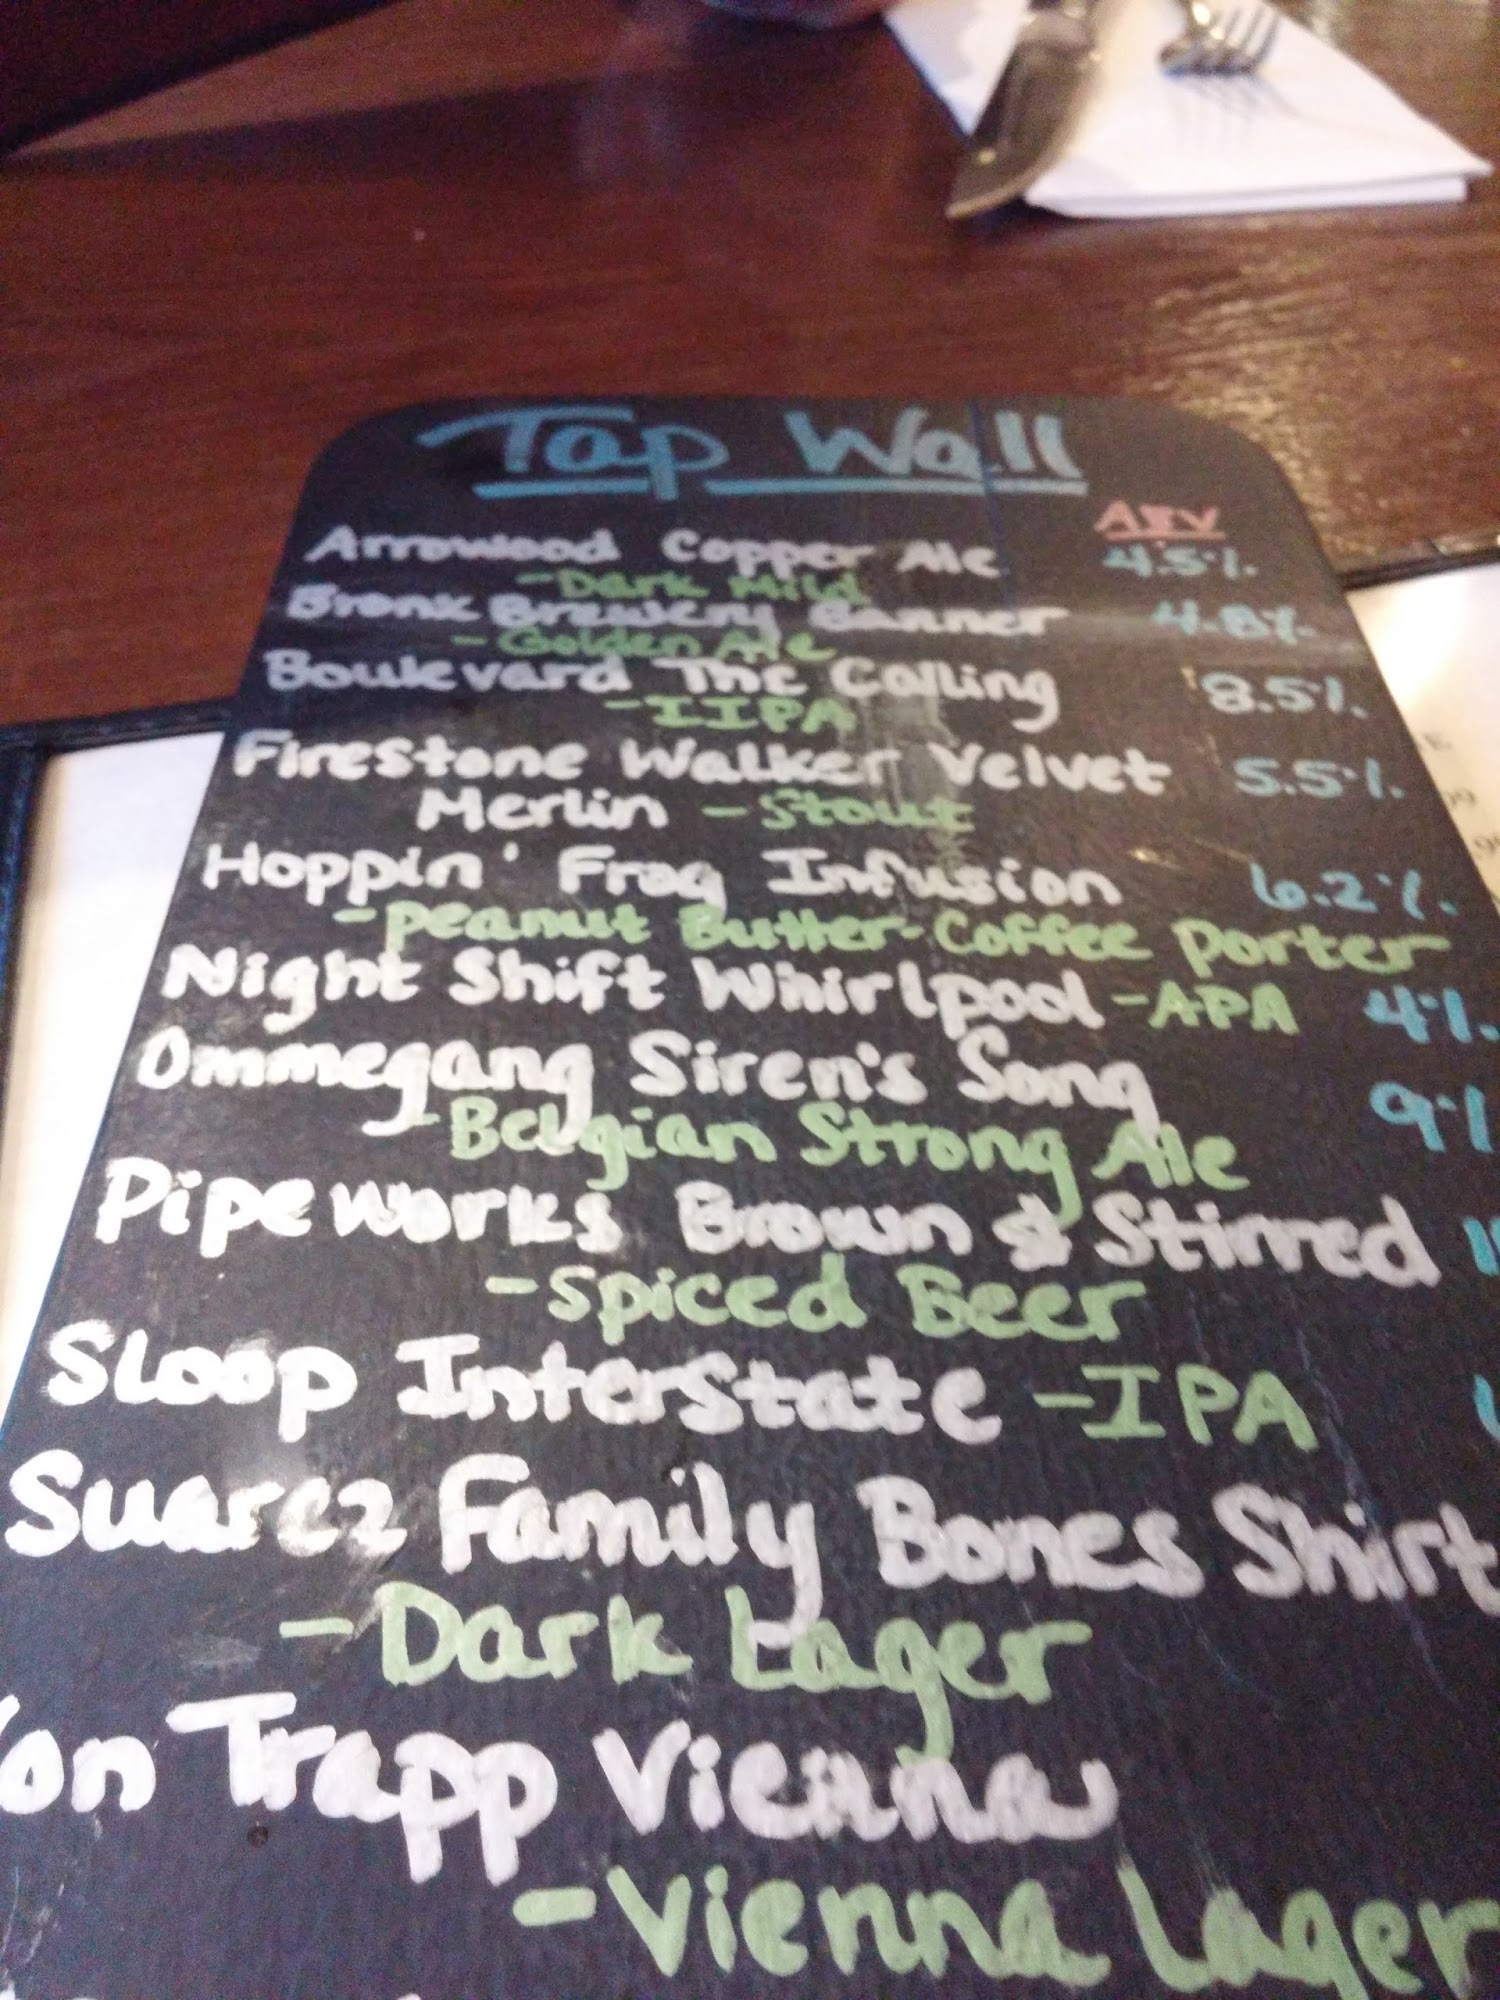 Tap Wall
ABV
Arrowood Copper Ale 4.5%
-Dark Mild
Bronx Brewery Banner 4.8%
-Golden Ale
Boulevard The Calling 8.5%
-IIPA
Firestone Walker Velvet 5.5%
Merlin -Stout
Hoppin' Frog Infusion 6.2%
-Peanut Butter-Coffee Porter
Night Shift Whirlpool -APA 4%
Ommegang Siren's Song 9%
-Belgian Strong Ale
Pipeworks Brown & Stirred
-Spiced Beer
Sloop Interstate -IPA
Suarez Family Bones Shirt
-Dark Lager
on Trapp Vienna
-Vienna Lager